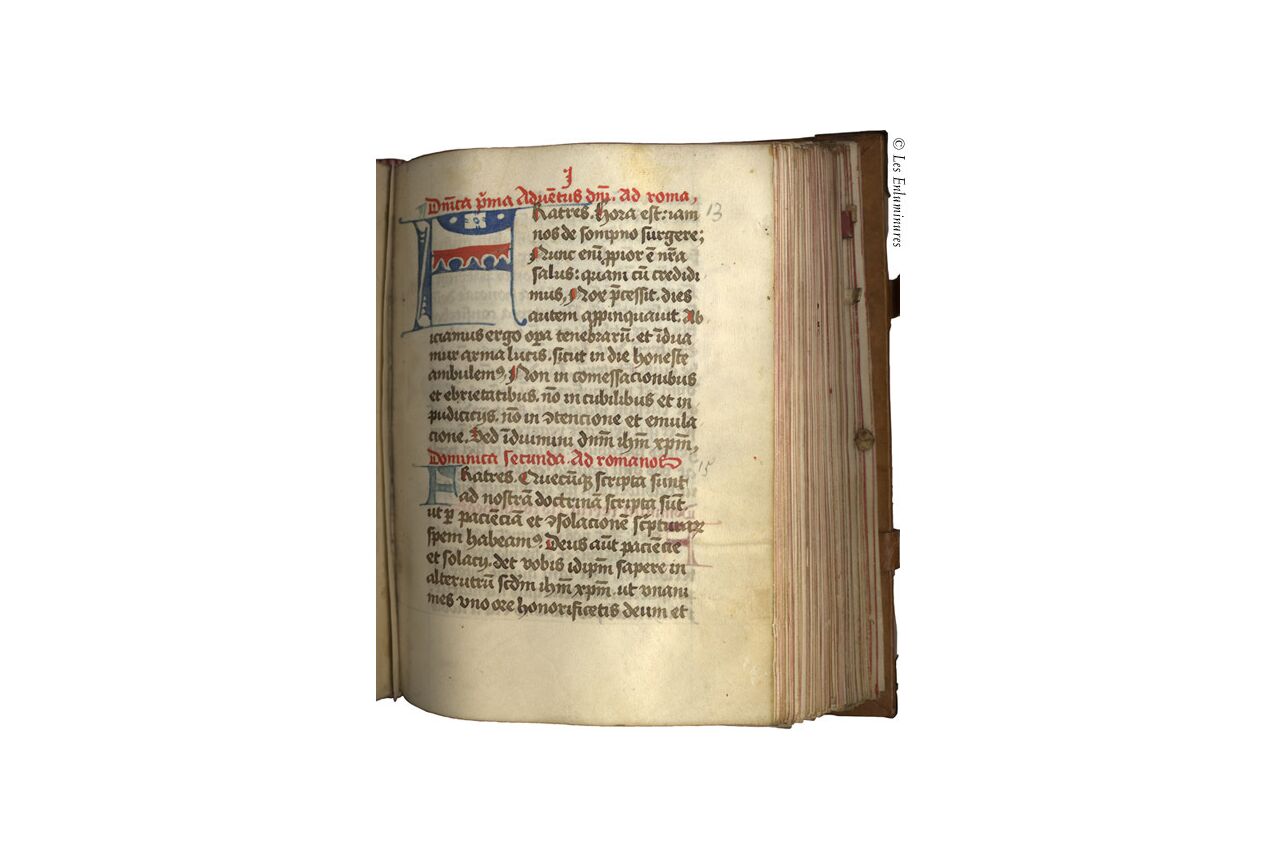 J
Dn̄ica p̄ma Aduētus dn̄i. Ad roma,
FRatres. Hora est: iam 13
nos de sompno surgere;
Nunc eni̅ ꝓpior ē nr̄a
salus: quam cū credidi
mus, Nox p̄cessit. dies
autem appinquauit. Ab
iciamus ergo oꝑa tenebrarū. et īdua
mur arma lucis. sicut in die honeste
ambulemꝰ, Non in comessacionibus
et ebrietatibus. nō in cubilibus et in
pudicicijs. nō in ꝯtencione et emula
cione. Sed īduimini dnm̄ ihm̄ xpm̄,
Dominica secunda. Ad romanos 15
FRatres. Quecūqꝫ scripta sunt
ad nostrā doctrinā scripta sūt.
ut ꝑ paciēciā et ꝯsolacionē sc̄pturaꝝ
spem habeamꝰ. Deus aūt paciēcie
et solacij. det vobis idipm̄ sapere in
alterutrū scdm̄ ihm̄ xpm̄. ut vnani
mes vno ore honorificetis deum et
© Les Enluminures